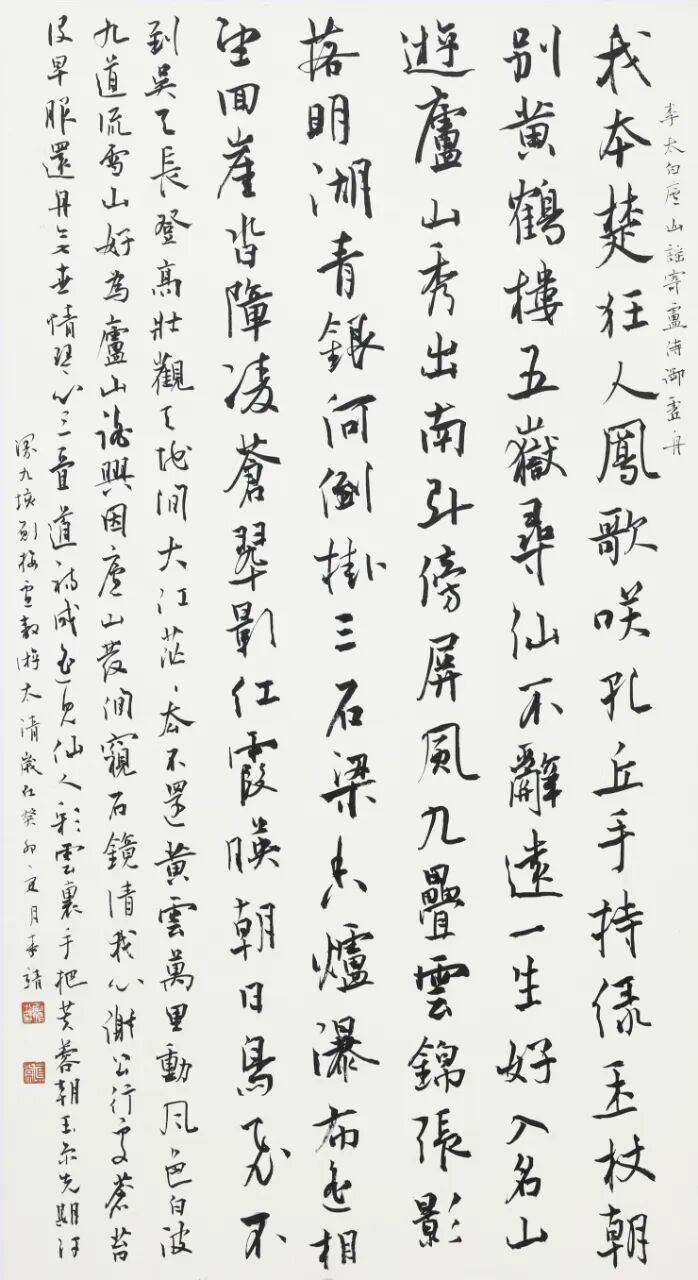 李太白廬山謠寄盧侍御虛舟
我本楚狂人鳳歌咲孔丘手持緑玉杖朝
別黃鶴樓五嶽尋仙不辭遠一生好入名山
遊廬山秀出南斗傍屏風九疊雲錦張影
落明湖青銀河倒掛三石梁香爐瀑布遙相
望回崖沓障凌蒼翠影紅霞暎朝日鳥飛不
到吳天長登高壯觀天地間大江茫々去不還黃雲萬里動風色白波
九道流雪山好為廬山謠興因廬山發閒窺石鏡清我心謝公行處蒼苔
沒早服還丹無世情琴心三疊道初成遙見仙人彩雲裏手把芙蓉朝玉京先期汗
漫九垓願接盧敖游太清歲在癸卯夏月靖